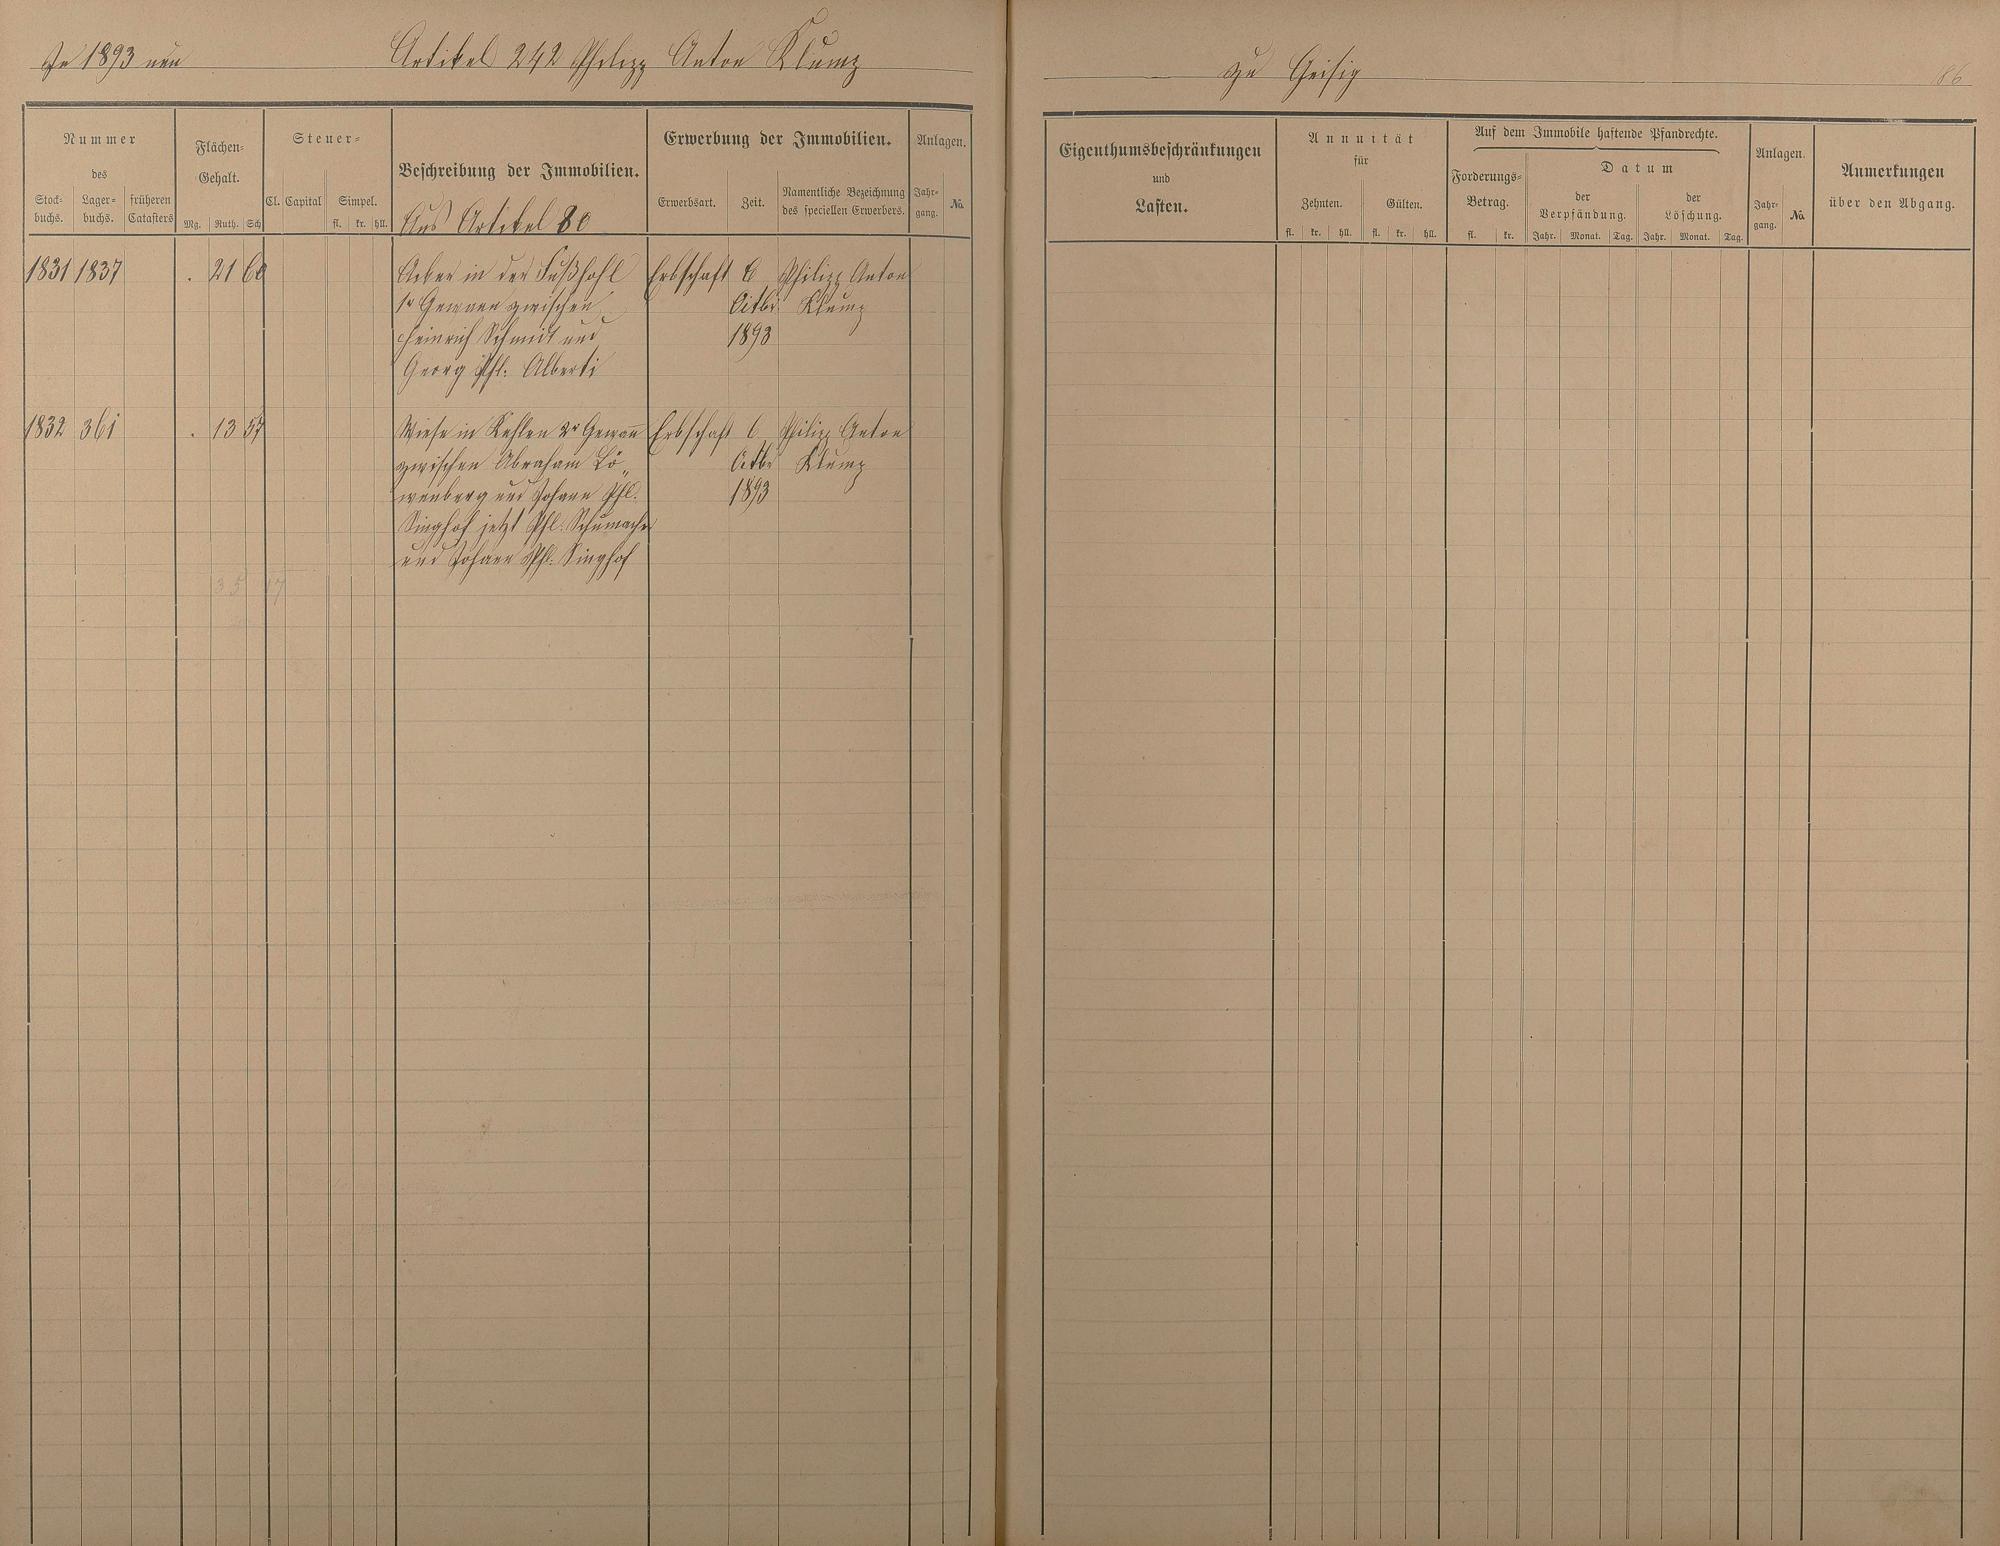 In 1893 neu
Artikel 242 Philipp Anton Klump
zu Geisig
186
Nummer
des
Stock-
buchs.
Lager-
buchs.
früheren
Catasters
Flächen-
Gehalt.
Mg. Ruth. Sch
Steuer-
Cl. Capital
Simpel.
fl. kr. hll.
Beschreibung der Immobilien.
Aus Artikel 80
Erwerbung der Immobilien.
Erwerbsart.
Zeit.
Namentliche Bezeichnung
des speciellen Erwerbers.
Anlagen.
Jahr-
gang.
No.
Eigenthumsbeschränkungen
und
Lasten.
Annuität
für
Zehnten.
Gülten.
fl. kr. hll. fl. kr. hll.
Auf dem Immobile haftende Pfandrechte.
Forderungs-
Betrag.
fl. kr.
Datum
der
Verpfändung.
der
Löschung.
Jahr. Monat. Tag. Jahr. Monat. Tag.
Anlagen.
Jahr-
gang.
No.
Anmerkungen
über den Abgang.
1831 1837 . 21 60 Acker in der Fußhohl Erbschaft 6 Philipp Anton
1r Gewann zwischen Octbr Klump
Heinrich Schmidt und 1893
Georg Phl. Alberti
1832 361 . 13 57 Wiese in Kehlen 2r Gewann Erbschaft 6 Philipp Anton
zwischen Abraham Lö„ Octbr Klump
wenberg und Johann Phl. 1893
Singhof jetzt Phl. Schumacher
und Johann Phl. Singhof
35 17